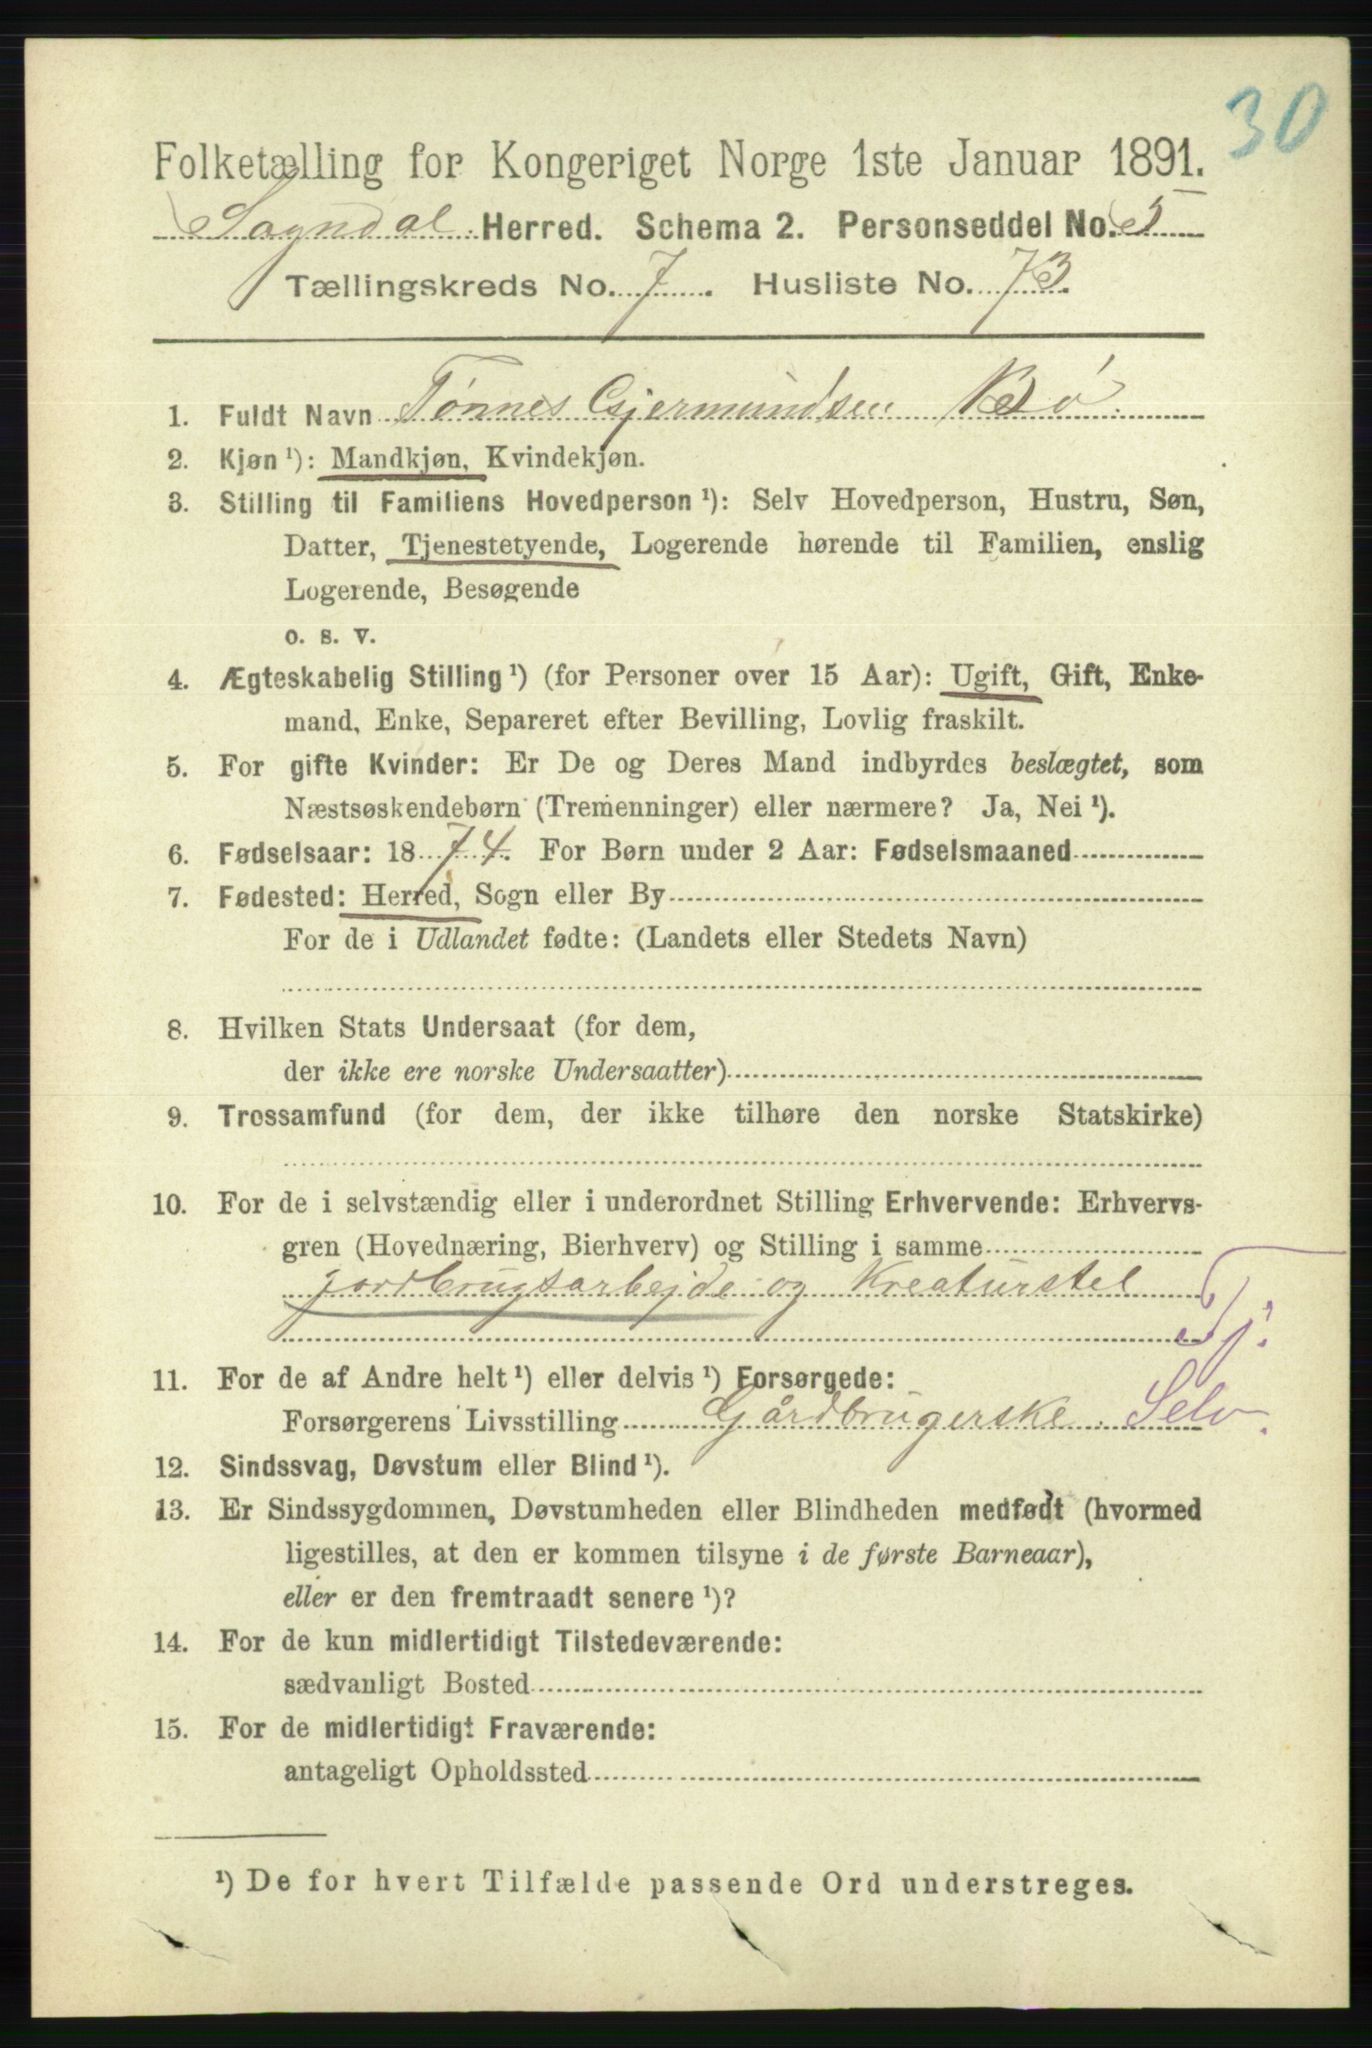 30
Folketælling for Kongeriget Norge 1ste Januar 1891.
Sogndal Herred. Schema 2. Personseddel No. 5
Tællingskreds No. 7. Husliste No. 73.
1. Fuldt Navn Tønnes Gjermundsen Bø.
2. Kjøn ¹): Mandkjøn, Kvindekjøn.
3. Stilling til Familiens Hovedperson ¹): Selv Hovedperson, Hustru, Søn,
Datter, Tjenestetyende, Logerende hørende til Familien, enslig
Logerende, Besøgende
o. s. v.
4. Ægteskabelig Stilling ¹) (for Personer over 15 Aar): Ugift, Gift, Enke-
mand, Enke, Separeret efter Bevilling, Lovlig fraskilt.
5. For gifte Kvinder: Er De og Deres Mand indbyrdes beslægtet, som
Næstsøskendebørn (Tremenninger) eller nærmere? Ja, Nei ¹).
6. Fødselsaar: 1874. For Børn under 2 Aar: Fødselsmaaned
7. Fødested: Herred, Sogn eller By
For de i Udlandet fødte: (Landets eller Stedets Navn)
8. Hvilken Stats Undersaat (for dem,
der ikke ere norske Undersaatter)
9. Trossamfund (for dem, der ikke tilhøre den norske Statskirke)
10. For de i selvstændig eller i underordnet Stilling Erhvervende: Erhvervs-
gren (Hovednæring, Bierhverv) og Stilling i samme
jordbrugsarbejde og Kreaturstel
Tj.
11. For de af Andre helt ¹) eller delvis ¹) Forsørgede:
Forsørgerens Livsstilling Gårdbrugerske. Selv.
12. Sindssvag, Døvstum eller Blind ¹).
13. Er Sindssygdommen, Døvstumheden eller Blindheden medfødt (hvormed
ligestilles, at den er kommen tilsyne i de første Barneaar),
eller er den fremtraadt senere ¹)?
14. For de kun midlertidigt Tilstedeværende:
sædvanligt Bosted
15. For de midlertidigt Fraværende:
antageligt Opholdssted
¹) De for hvert Tilfælde passende Ord understreges.